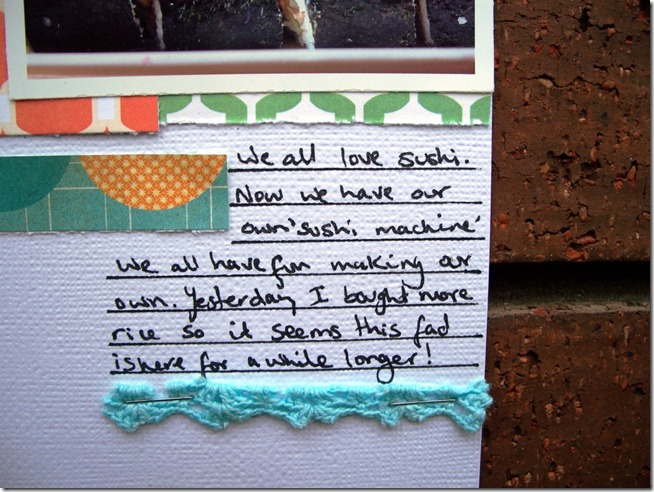 We all love sushi.
Now we have our
own 'sushi machine'
we all have fun making our
own. Yesterday I bought more
rice so it seems this fad
is here for a while longer!